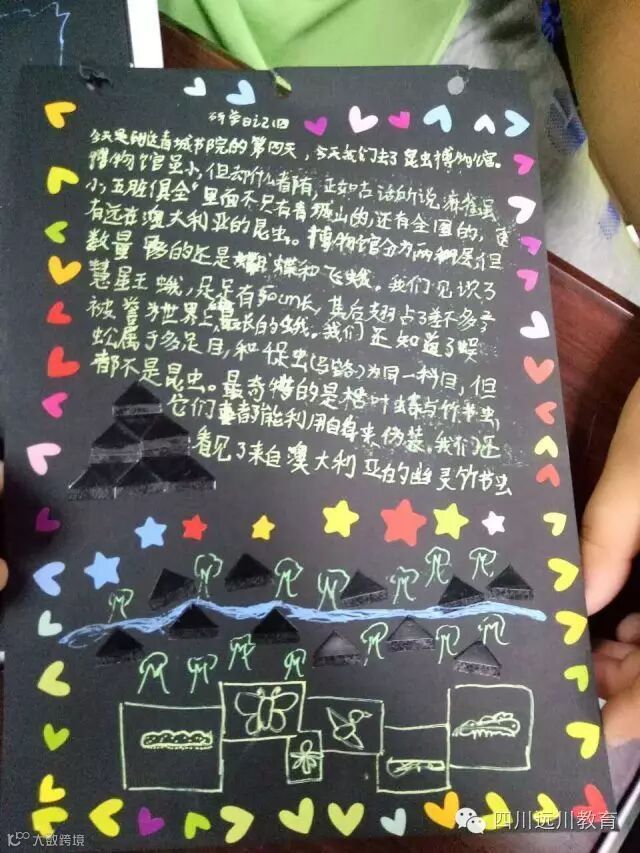 研学日记四
今天是到达青城书院的第四天,今天我们去了昆虫博物馆。
博物馆虽小,但却什么都有,正如古话所说"麻雀虽
小,五脏俱全"里面不只有青城山的,还有全国的,更
有远在澳大利亚的昆虫。博物馆分为两层,但
数量多的还是蝴蝶和飞蛾。我们见识了
慧星王蛾,足足有30cm长,其后翅占了差不多
被誉为世界上最长的蛾。我们还知道了蜈
蚣属于多足目,和 (马路)为同一科目,但
都不是昆虫。最奇特的是枯叶蝶与竹节虫,
它们都能利用自身来伪装。我们还
看见了来自澳大利亚的幽灵竹节虫
四川远川教育
大数跨境